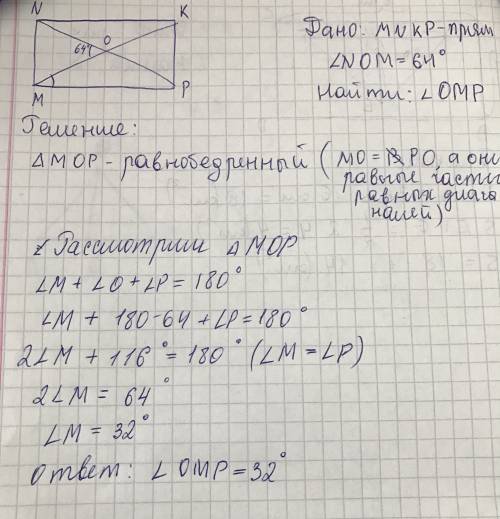 N K
Дано: MNKP-прям
64° O
∠NOM=64°
M P
Найти: ∠OMP
Решение:
△MOP - равнобедренный ( MO = PO, а они
равные части
равных диаго
налей)
Рассмотрим △MOP
∠M + ∠O + ∠P = 180°
∠M + 180-64 + ∠P = 180°
2∠M + 116° = 180° (∠M = ∠P)
2∠M = 64°
∠M = 32°
Ответ: ∠OMP = 32°